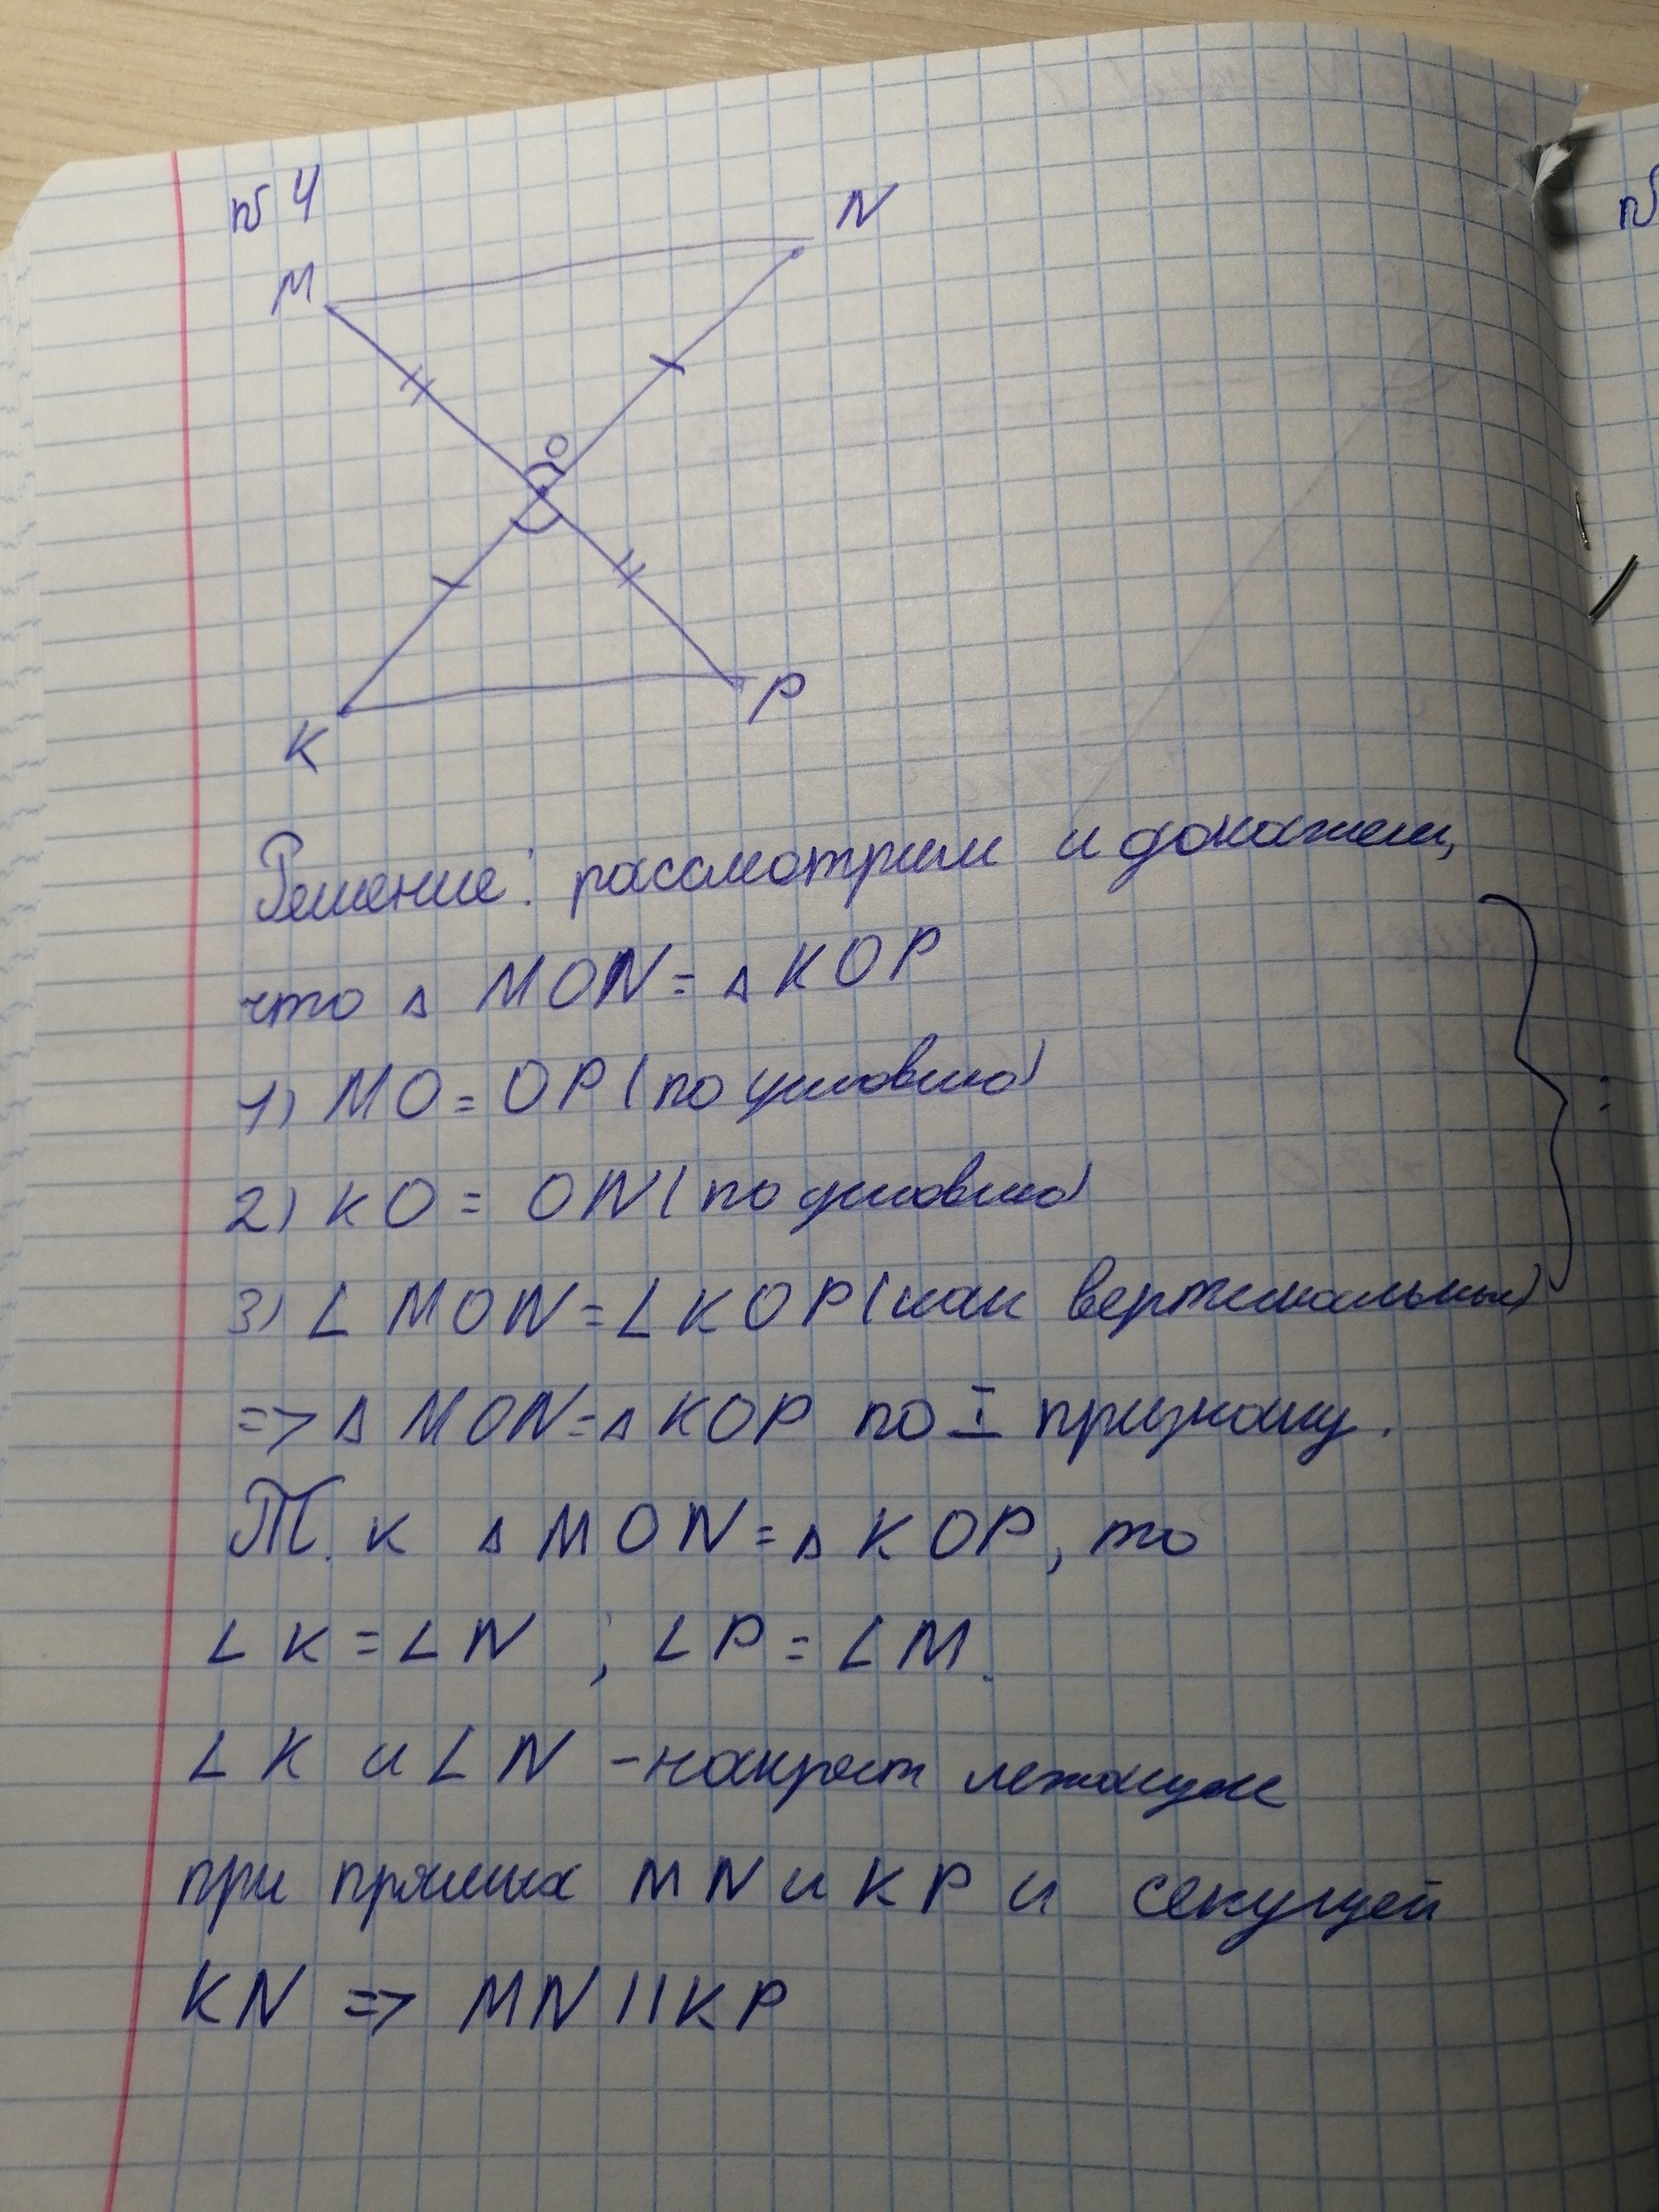 №4
N
M
O
K
P
Решение: рассмотрим и докажем,
что ∆ MON = ∆ KOP
1) MO = OP (по условию)
2) KO = ON (по условию)
3) ∠ MON = ∠ KOP (как вертикальные)
=> ∆ MON = ∆ KOP по I признаку.
Т.к ∆ MON = ∆ KOP, то
∠ K = ∠ N ; ∠ P = ∠ M.
∠ K и ∠ N - накрест лежащие
при прямых MN и KP и секущей
KN => MN || KP